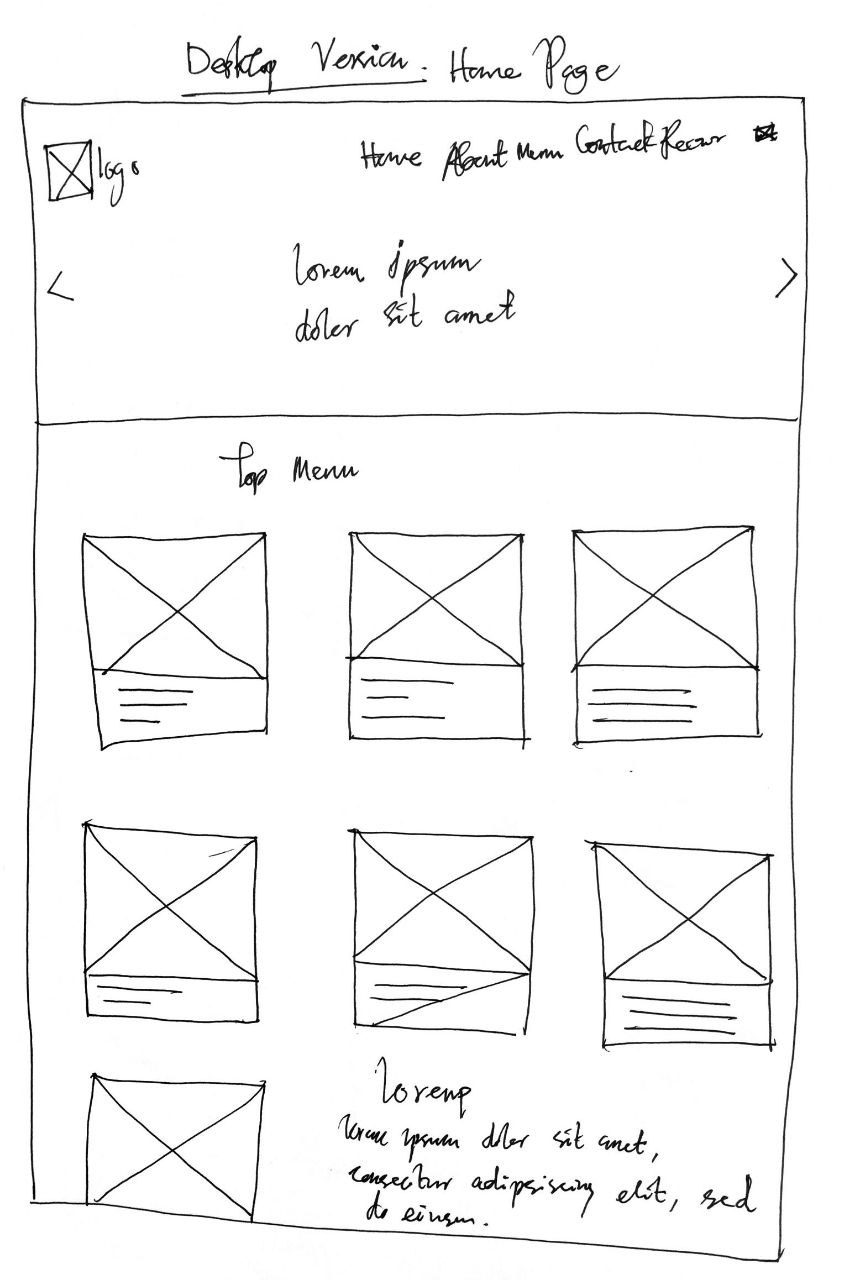 Desktop Version. Home Page
logo
Home About Menu Contact
lorem ipsum
doler sit amet
Top Menu
lorem
lorem ipsum doler sit amet,
consectur adipsiscing elit, sed
do eiusm.